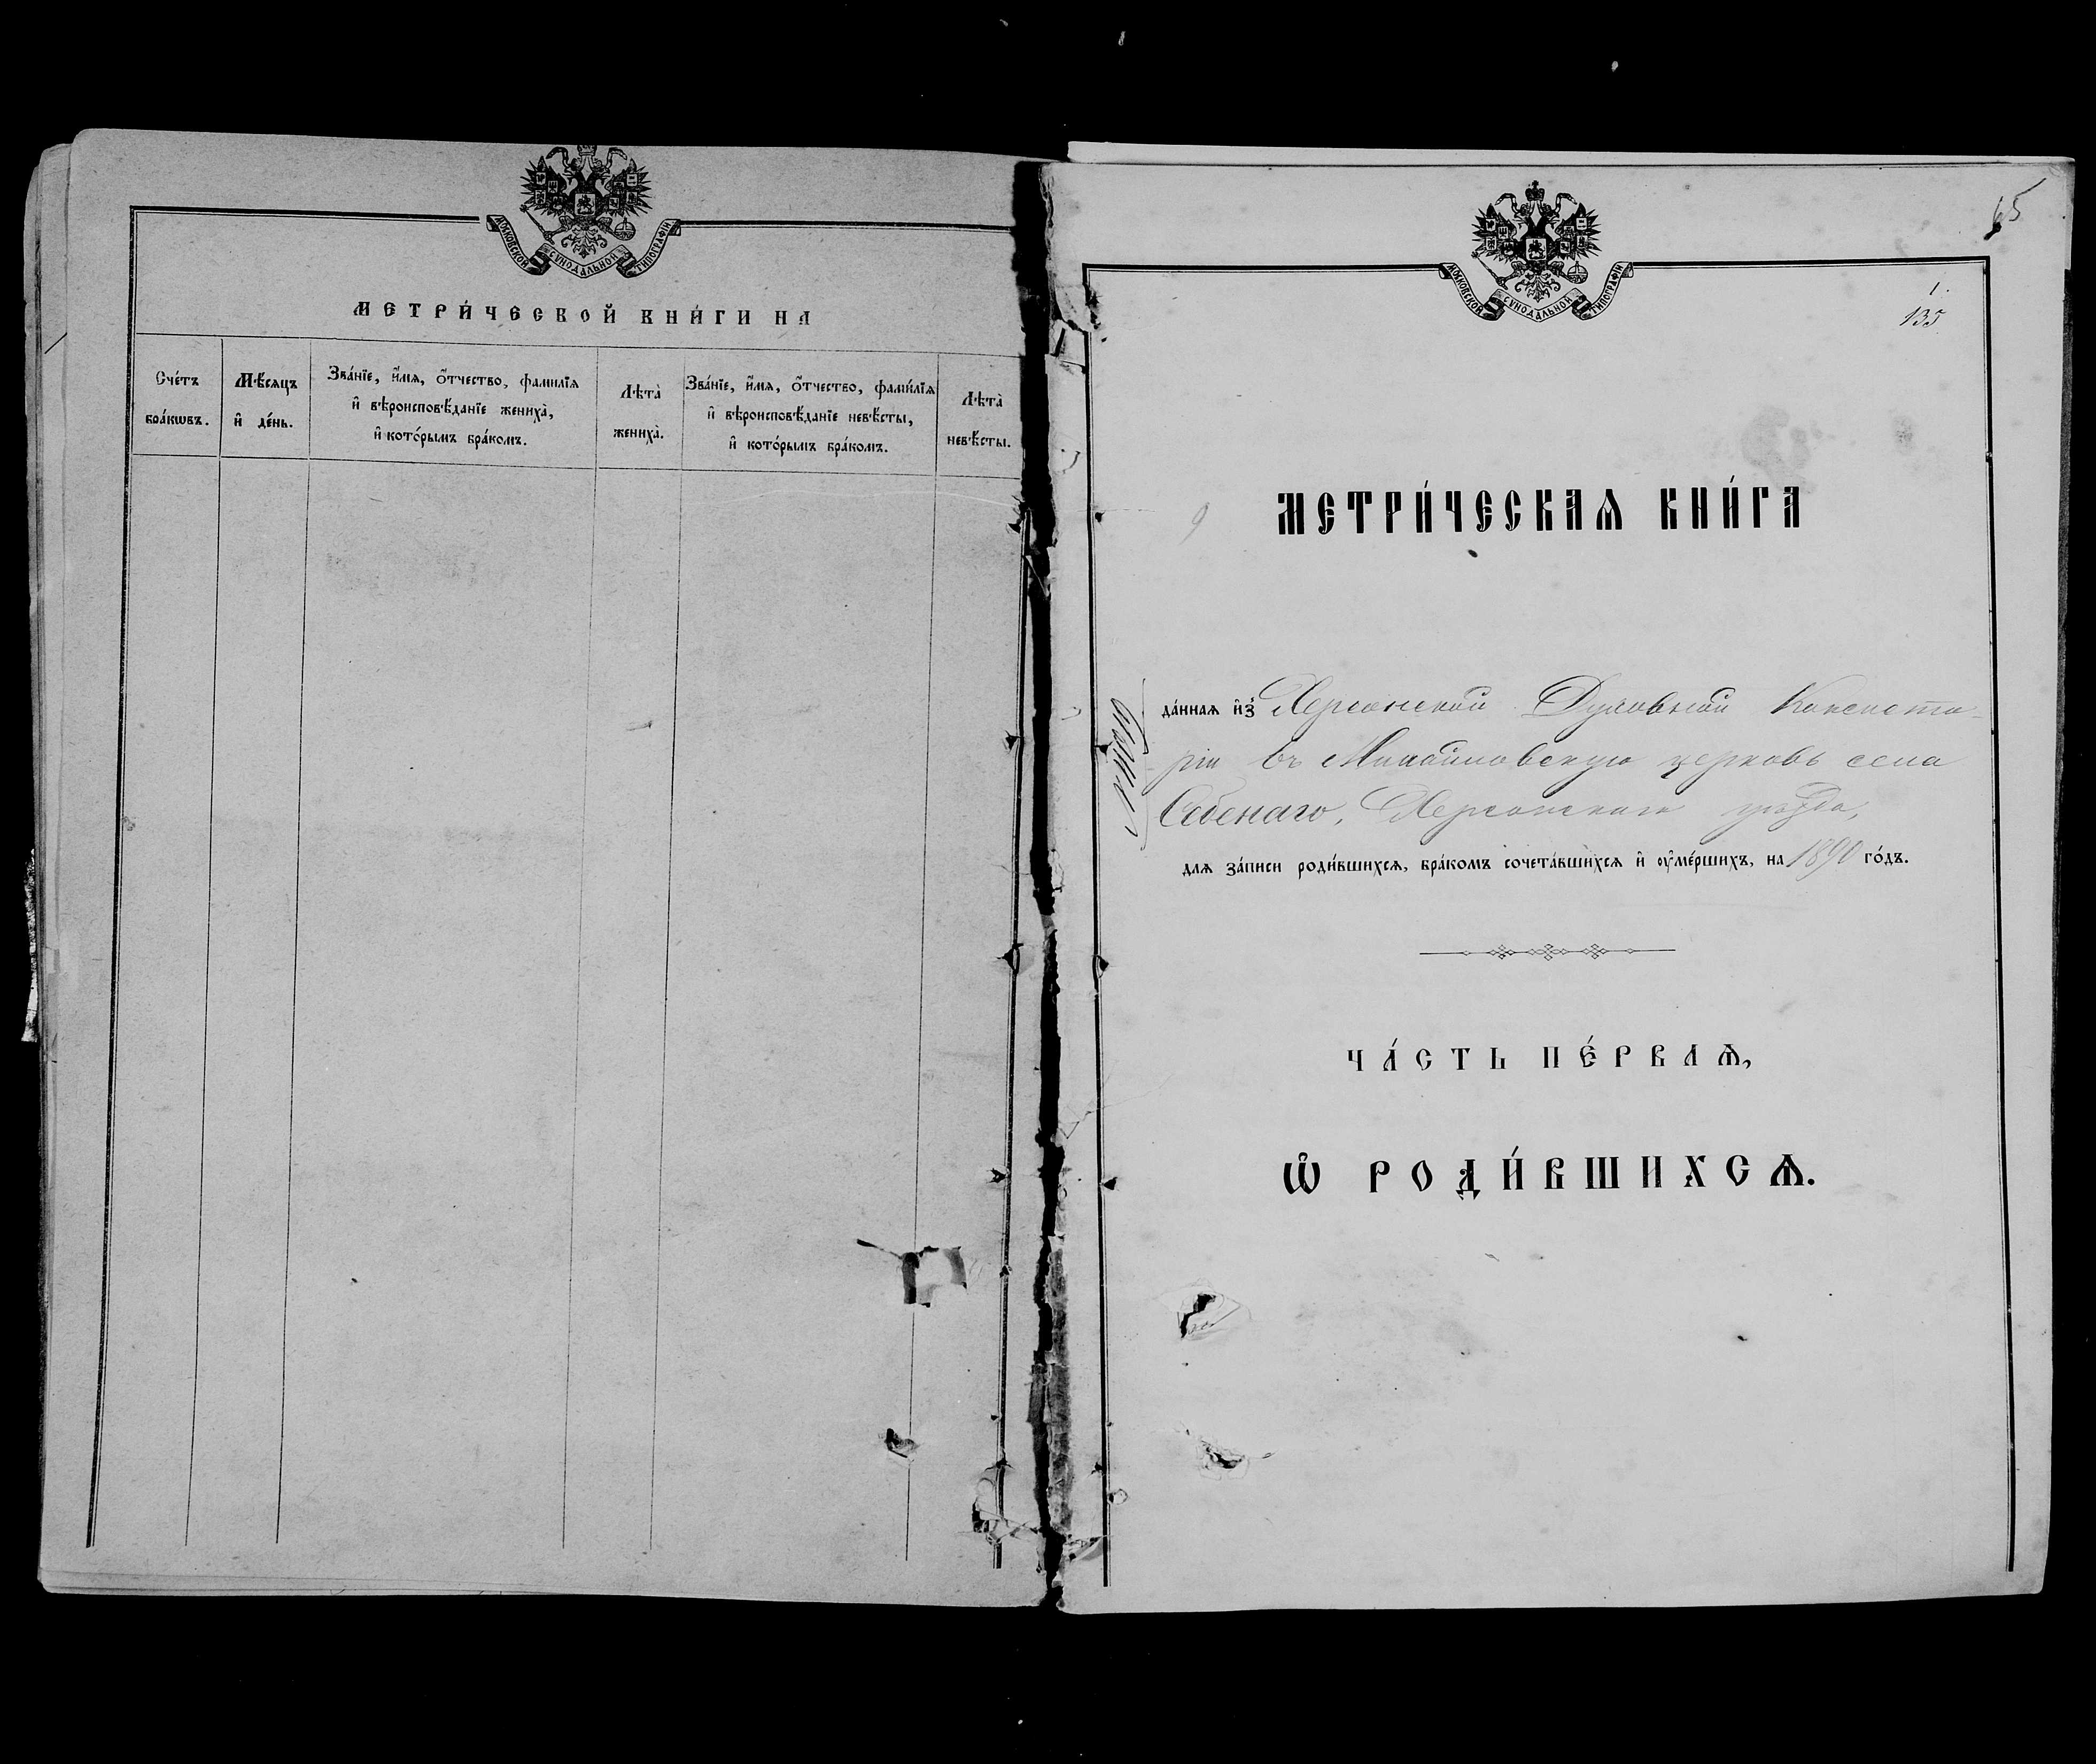 МОСКОВСКОЙ СѴНОДАЛЬНОЙ ТИПОГРАФІИ
МЕТРИ́ЧЕСКОЙ КНИ́ГИ НА
Сче́тъ
бра́кѡвъ.
Мѣ́сяцъ
и҆ де́нь.
Зва́нїе, и҆́мѧ, ѻ҆́тчество, фами́лїѧ
и҆ вѣроисповѣ́данїе жениха̀,
и҆ кото́рымъ бра́комъ.
Лѣта̀
жениха̀.
Зва́нїе, и҆́мѧ, ѻ҆́тчество, фами́лїѧ
и҆ вѣроисповѣ́данїе невѣ́сты,
и҆ кото́рымъ бра́комъ.
Лѣта̀
невѣ́сты.
65
МОСКОВСКОЙ СѴНОДАЛЬНОЙ ТИПОГРАФІИ
1.
135
МЕТРИ́ЧЕСКАѦ КНИ́ГА
9
да́ннаѧ и҆з̾ Херсонской Духовной Консисто-
ріи въ Михайловскую церковь села
Себенаго, Херсонскаго уѣзда,
длѧ за́писи роди́вшихсѧ, бра́комъ сочета́вшихсѧ и҆ ᲂу҆ме́ршихъ, на 1890 го́дъ.
ЧА́СТЬ ПЕ́РВАѦ,
Ѡ҆ РОДИ́ВШИХСѦ.